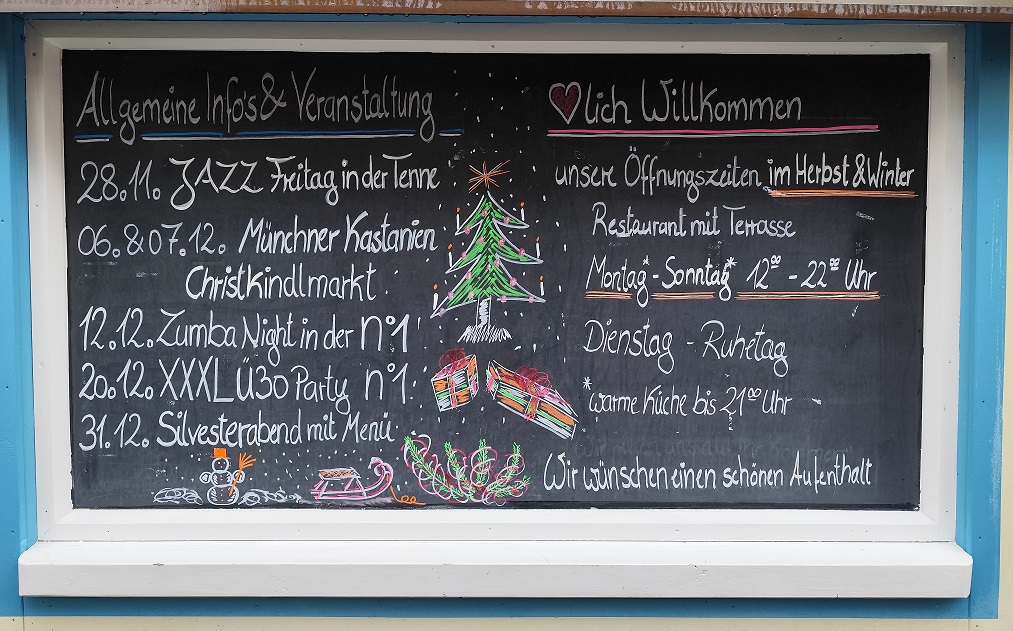 Allgemeine Info's & Veranstaltung
28.11. JAZZ Freitag in der Tenne
06. & 07.12. Münchner Kastanien
Christkindlmarkt
12.12. Zumba Night in der n°1
20.12. XXXL Ü30 Party n°1
31.12. Silvesterabend mit Menü
♥lich Willkommen
unsere Öffnungszeiten im Herbst & Winter
Restaurant mit Terrasse
Montag* - Sonntag* 12⁰⁰ - 22⁰⁰ Uhr
Dienstag - Ruhetag
*warme Küche bis 21⁰⁰ Uhr
Wir wünschen einen schönen Aufenthalt